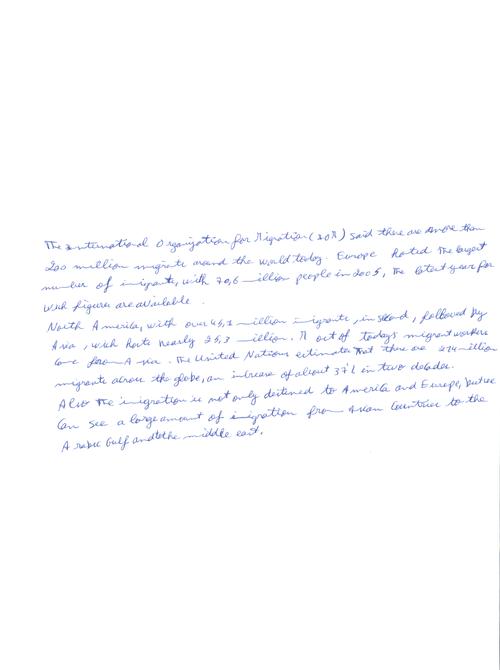 The International Organization for Migration (IOM) said there are more than
200 million migrants around the world today. Europe hosted the largest
number of imigrants, with 70,6 million people in 2005, the latest year for
wich figures are available.
North America, with over 45,1 million imigrants, in second, followed by
Asia, wich hosts nearly 25,3 million. of todays migrant workers
come from Asia. The United Nations estimates that there are 214 million
migrants across the globe, an increase of about 37% in two decades.
Also The imigration is not only destined to America and Europe, but we
Can see a large amount of imigration from Asian Countries to the
Arabic Gulf and to the middle east.